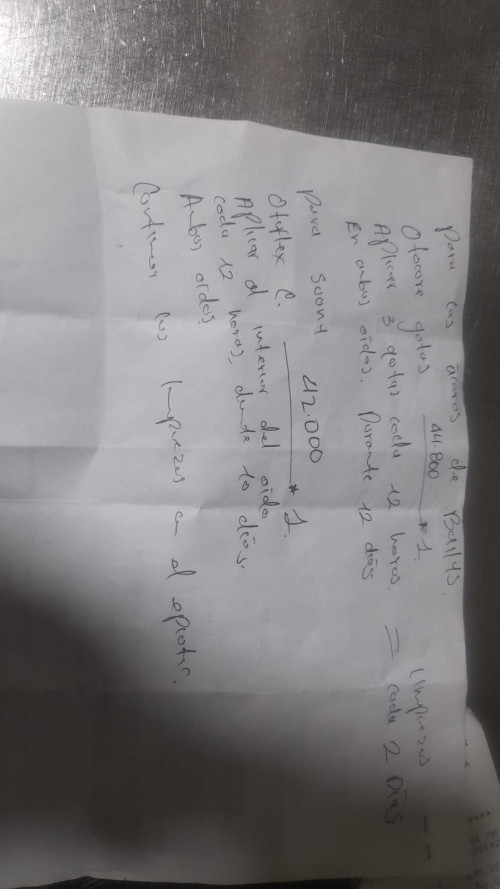 Para los ácaros de Bailys.
Otocare gotas 44.800. * 1.
Aplicar 3 gotas cada 12 horas.
En ambos oídos. Durante 12 días
= Limpiezas --
cada 2 Días
Para 42.000
Otoflex C. * 1.
Aplicar al interior del oído
cada 12 horas, durante 10 días.
Ambos oídos.
Continuar las limpiezas con el epiotic.